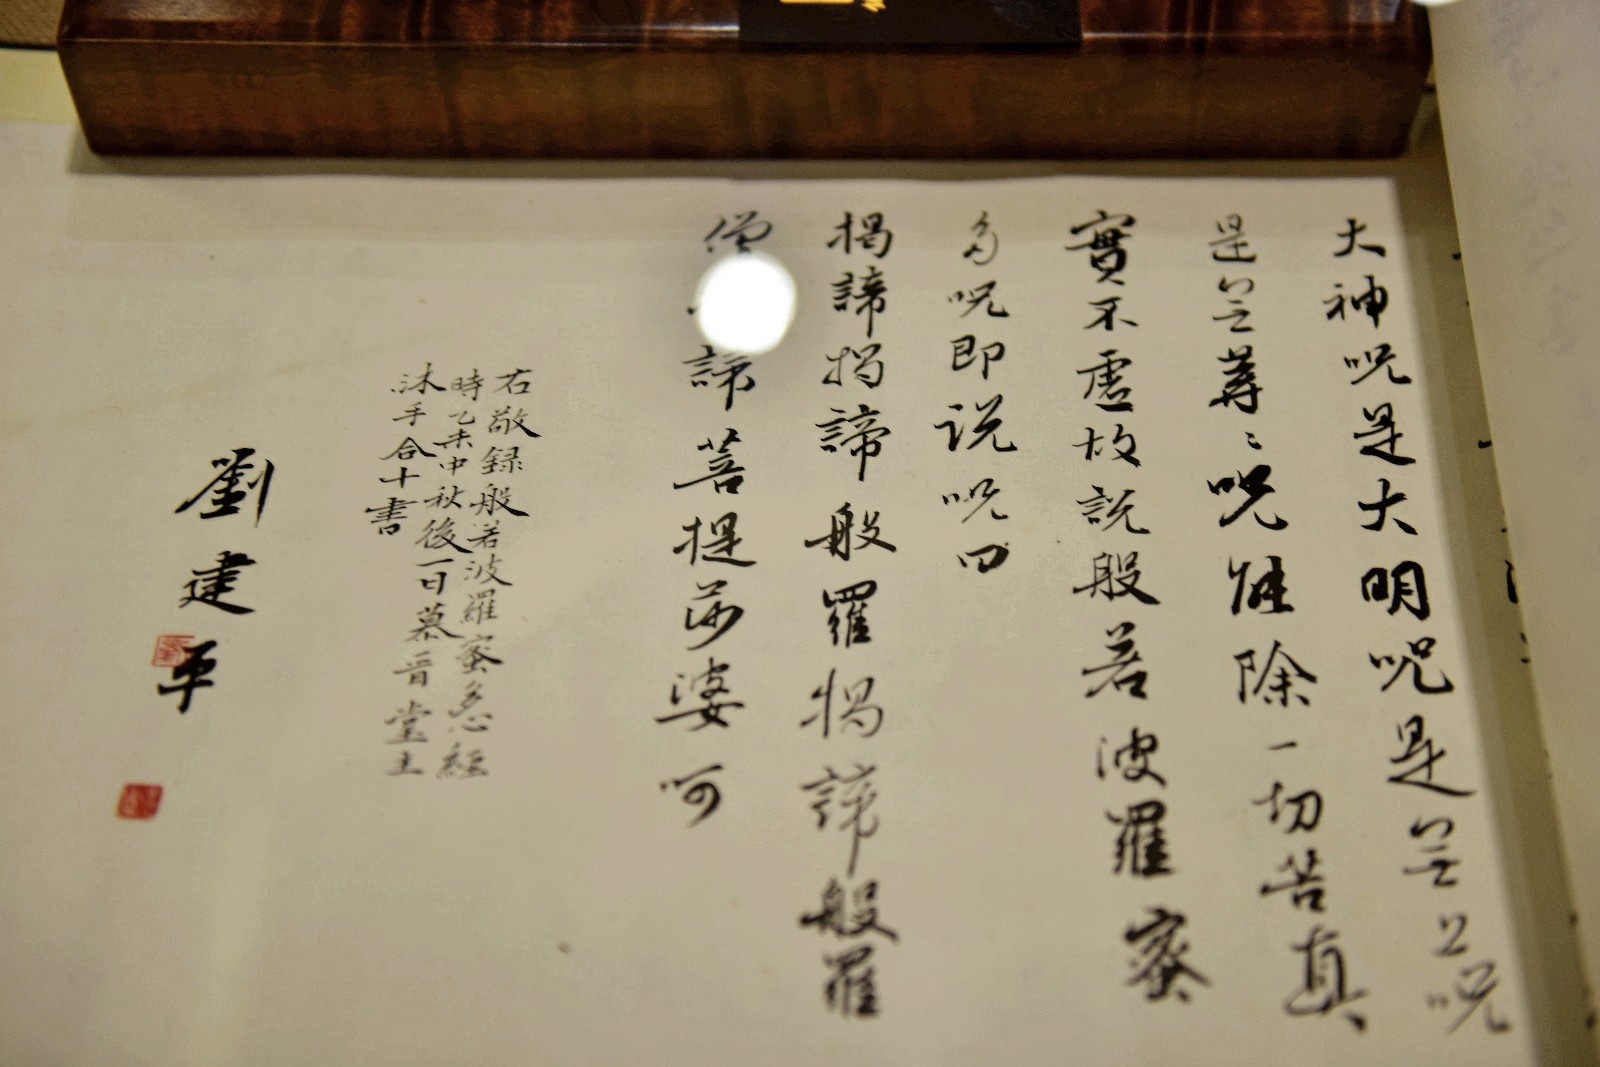 大神呪是大明呪是無上呪
是無等〻呪能除一切苦真
實不虛故說般若波羅蜜
多呪即说呪曰
揭諦揭諦般羅揭諦般羅
僧諦菩提莎婆呵
右敬録般若波羅蜜多心經
時乙未中秋後一日慕晉堂主
沐手合十書
劉建平